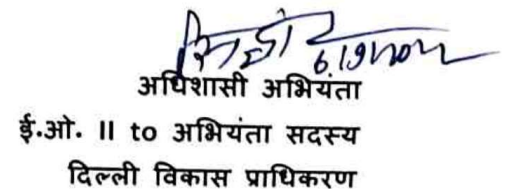 अधिशासी अभियंता
ई.ओ. II to अभियंता सदस्य
दिल्ली विकास प्राधिकरण